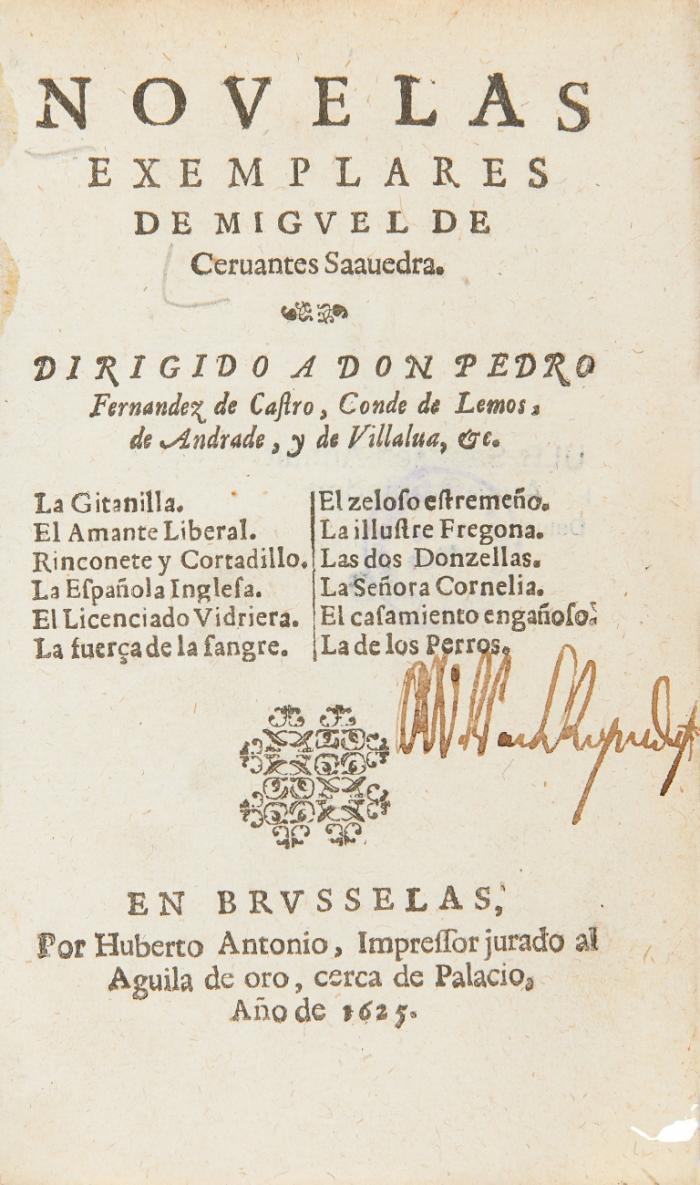 NOVELAS
EXEMPLARES
DE MIGVEL DE
Ceruantes Saauedra.
DIRIGIDO A DON PEDRO
Fernandez de Caſtro, Conde de Lemos,
de Andrade, y de Villalua, &c.
La Gitanilla.
El Amante Liberal.
Rinconete y Cortadillo.
La Eſpañola Ingleſa.
El Licenciado Vidriera.
La fuerça de la ſangre.
El zeloſo eſtremeño.
La illuſtre Fregona.
Las dos Donzellas.
La Señora Cornelia.
El caſamiento engañoſo.
La de los Perros.
EN BRVSSELAS,
Por Huberto Antonio, Impreſſor jurado al
Aguila de oro, cerca de Palacio,
Año de 1625.